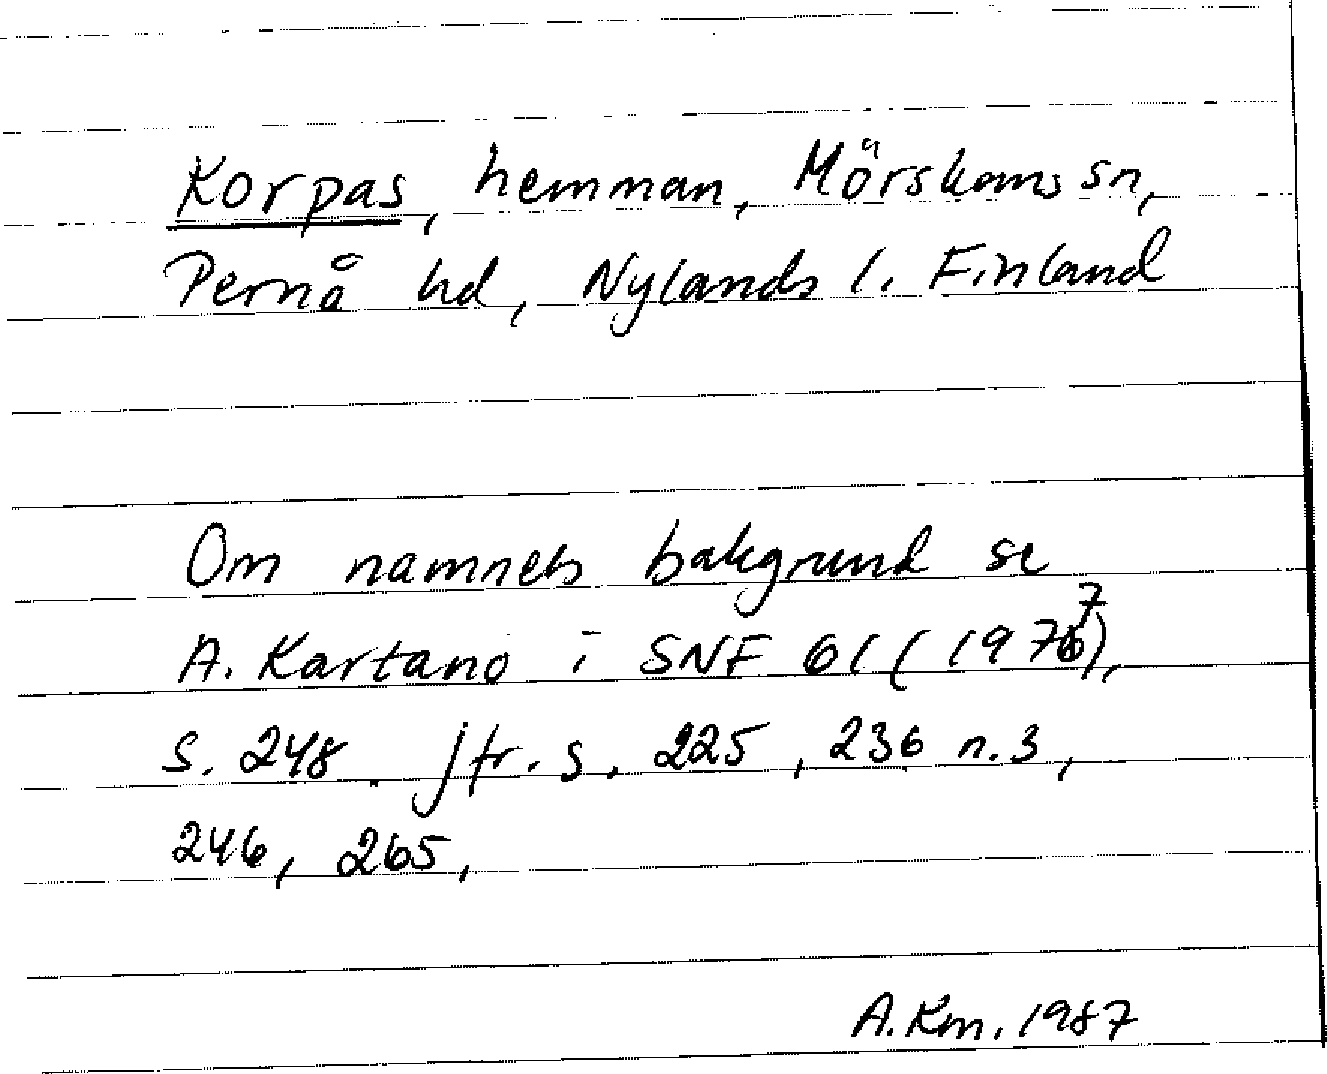 Korpas, hemman, Mörskoms sn,
Pernå hd, Nylands l. Finland
Om namnets bakgrund se
A. Kartano i SNF 61 (1977),
s. 248. jfr. s. 225, 236 n.3,
246, 265,
A.Km. 1987